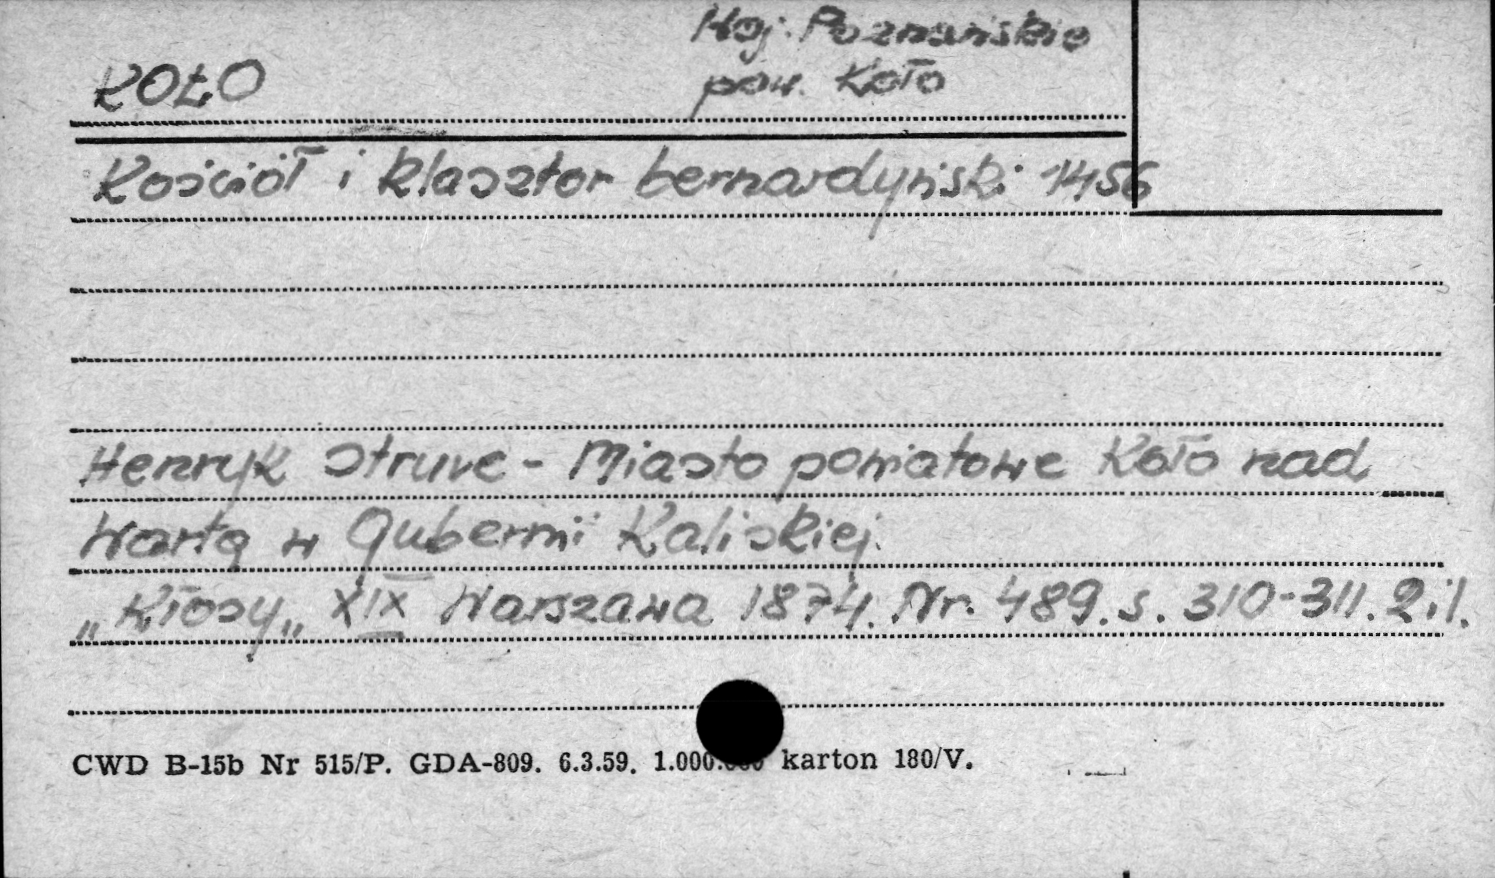 Woj. Poznańskie
KOŁO pow. Koło
Kościół i klasztor bernardyński 1456
Henryk Struve - Miasto powiatowe Koło nad
Wartą w Gubernii Kaliskiej.
„Kłosy„ XIX Warszawa 1874. Nr. 489. s. 310-311. 2 il.
CWD B-15b Nr 515/P. GDA-809. 6.3.59. 1.000.000 karton 180/V.